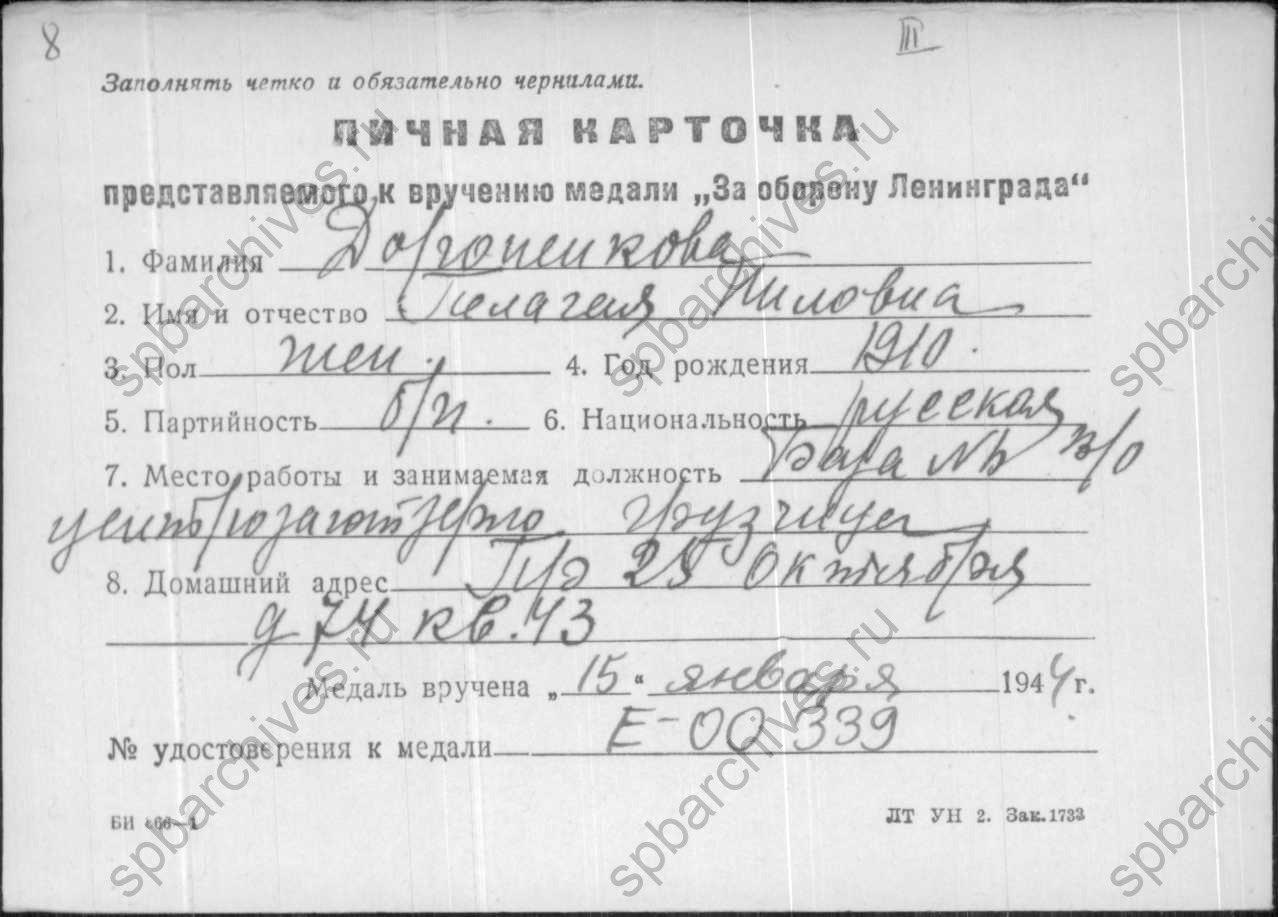 8 III
Заполнять четко и обязательно чернилами.
ЛИЧНАЯ КАРТОЧКА
представляемого к вручению медали „За оборону Ленинграда“
1. Фамилия
2. Имя и отчество Пелагея Ниловна
3. Пол жен. 4. Год рождения 1910.
5. Партийность б/п. 6. Национальность русская
7. Место работы и занимаемая должность База №
грузчица
8. Домашний адрес Пр 25 Октября
д 74 кв. 43
Медаль вручена „15“ января 1944 г.
№ удостоверения к медали Е-00339
БИ ЛТ УН 2. Зак. 1733
spbarchives.ru
spbarchives.ru
spbarchives.ru
spbarchives.ru